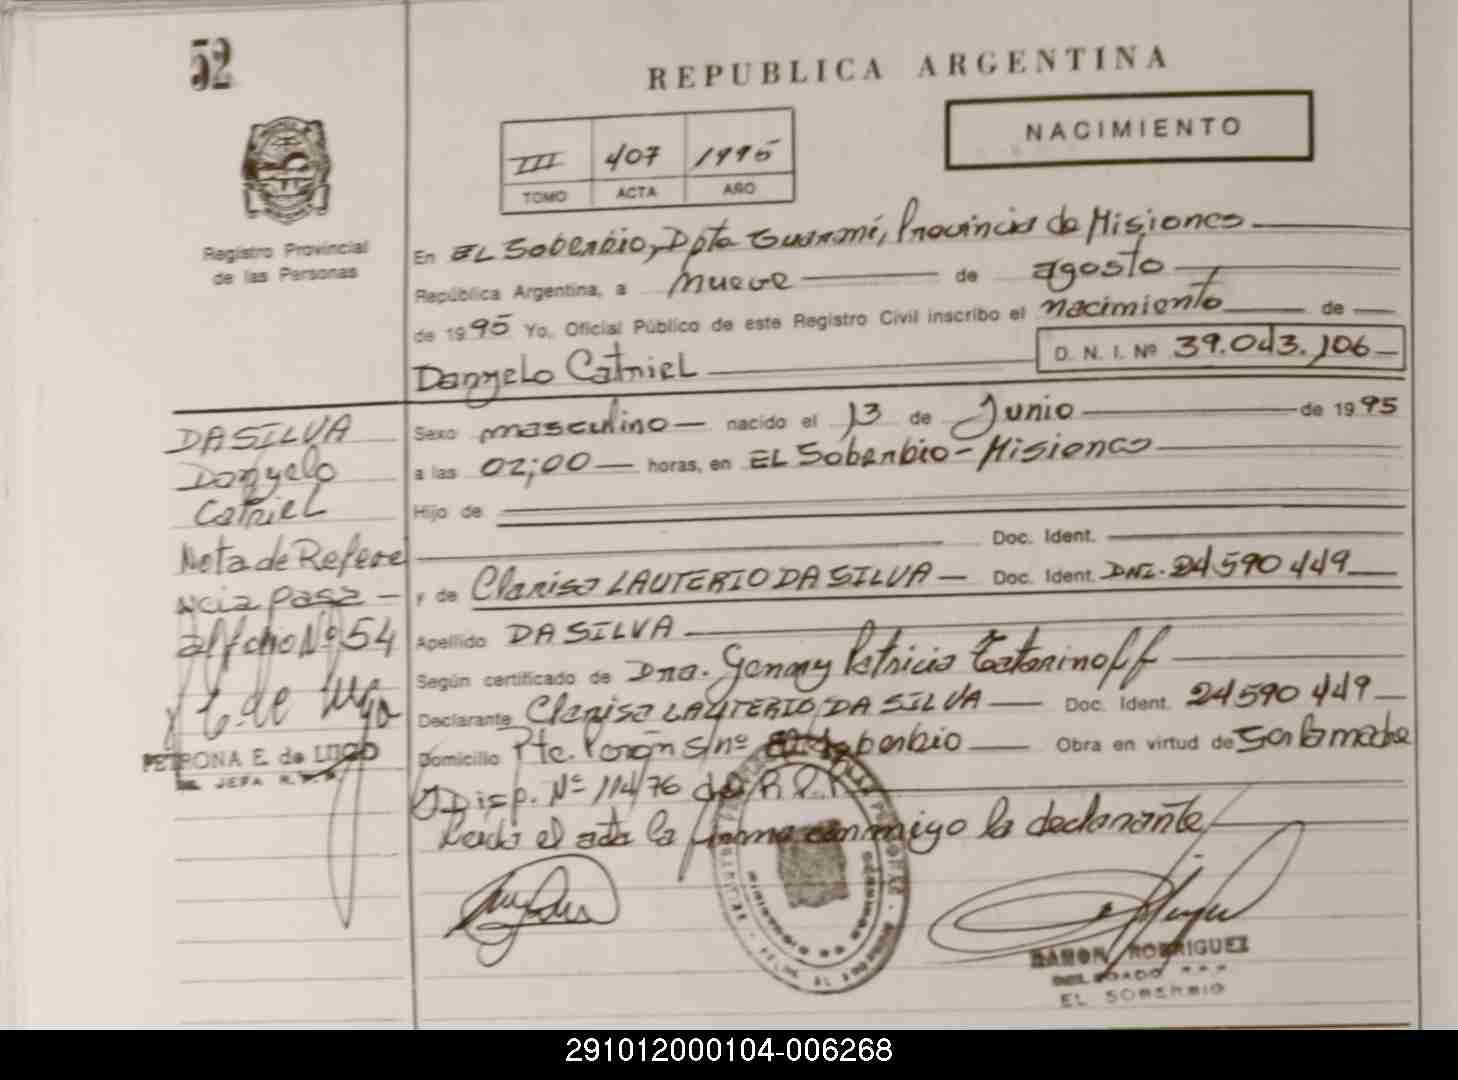 52
REPUBLICA ARGENTINA
NACIMIENTO
III 407 1995
TOMO ACTA AÑO
Registro Provincial
de las Personas
En EL Soberbio, Dpto Guaraní, Provincia de Misiones
República Argentina, a nueve de agosto
de 1995 Yo, Oficial Público de este Registro Civil inscribo el nacimiento de
Dangelo Catriel D. N. I. Nº 39.043.106
DA SILVA
Dangelo
Catriel
Nota de Refere
ncia pasa
al folio Nº 54
PETRONA E. de LUGO
JEFA R.
Sexo masculino nacido el 13 de Junio de 1995
a las 02;00 horas, en EL Soberbio - Misiones
Hijo de
Doc. Ident.
y de Clarisa LAUTERIO DA SILVA Doc. Ident. DNI. 24590449
Apellido DA SILVA
Según certificado de Dra. Genny Patricia Tatarinoff
Declarante Clarisa LAUTERIO DA SILVA Doc. Ident. 24590449
Domicilio Pte. Perón s/nº El Soberbio Obra en virtud de Ser la madre
Disp. Nº 114/76 de R.P.P.
Leída el acta la firma conmigo la declarante
RAMON RODRIGUEZ
DELEGADO
EL SOBERBIO
291012000104-006268